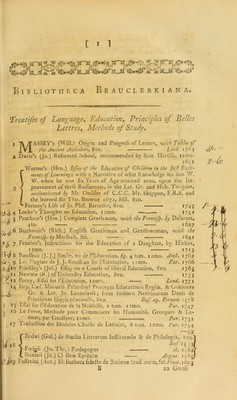 [ 1 ]
BIBLIOTHECA BEAUCLERKIANA.
Treatises of Language, Education, Principles of Belles
Lettres, Methods of Study.
1 MASSEY's (Will.) Origin and Progress of Letters, with Tables of
the Ancient Alphabets, 8vo. Lond. 1763
2 Durie's (Jo.) Reformed School, recommended by Sam. Hartlib, 12mo.
1651
Wotton's (Hen.) Essay of the Education of Children in the first Rudi-
ments of Learning; with a Narrative of what Knowledge his Son W.
W. when he was six Years of Age attained unto, upon the Im-
provement of those Rudiments, in the Lat. Gr. and Heb. Tongues,
authenticated by Mr. Ombler of C.C.C. Mr. Skippon, F.R.S. and
the learned Sir Tho. Browne 1672, MS. 8vo.
Formey's Life of Jo. Phil. Baratier, 8vo. 1745
Locke's Thoughts on Education, 12mo. 1732
Peacham's (Hen.) Compleat Gentleman, with the Frontisp. by Delaram,
4to. 1627
Brathwait's (Rich.) English Gentleman and Gentlewoman, with the
Frontisp. by Marshall, fol. 1641
Fenelon's Instructions for the Education of a Daughter, by Hickes,
12mo. 1713
Rousseau (J. J.) Emile, ou de l'Education, fig. 4 tom. 12mo. Amst. 1762
Les Plagiats de J. J. Rousseau sur l'Education, 12mo. Par. 1766
Priestley's (Jos.) Essay on a Course of liberal Education, 8vo. 1765
Newton (R.) of University Education, 8vo. 1726
Percey, Essai sur l'Education, 12mo. Lond.
Imp. Car. Mauroc. Palæologi Præcepta Educationis Regiæ, &
Gr. & Lat. Jo. Leunclavii;
Principum liberis 8vo. Bas. ap. Pernam 1578
15 Essai sur l'Education de la Noblesse, 2 tom. 12mo. Par. 1747
16 Le Fevre, Methode pour Commencer les Humanités Grecques & La-
tines, par Gaullyer, 12mo. Par. 1731
17 Traduction des Modèles Choisis de Latinité, 2 tom. 12mo. Par. 1754
Budæi (Gul.) de Studio Litterarum Instituendo & de Philologia,
Bas.
Freigii (Jo. Tho.) Pædagogus
(Jo.)
Possevini (Ant.) Bibliotheca selecta de Ratione Studiorum, fol. Venet. 1603
B 22 Gesni